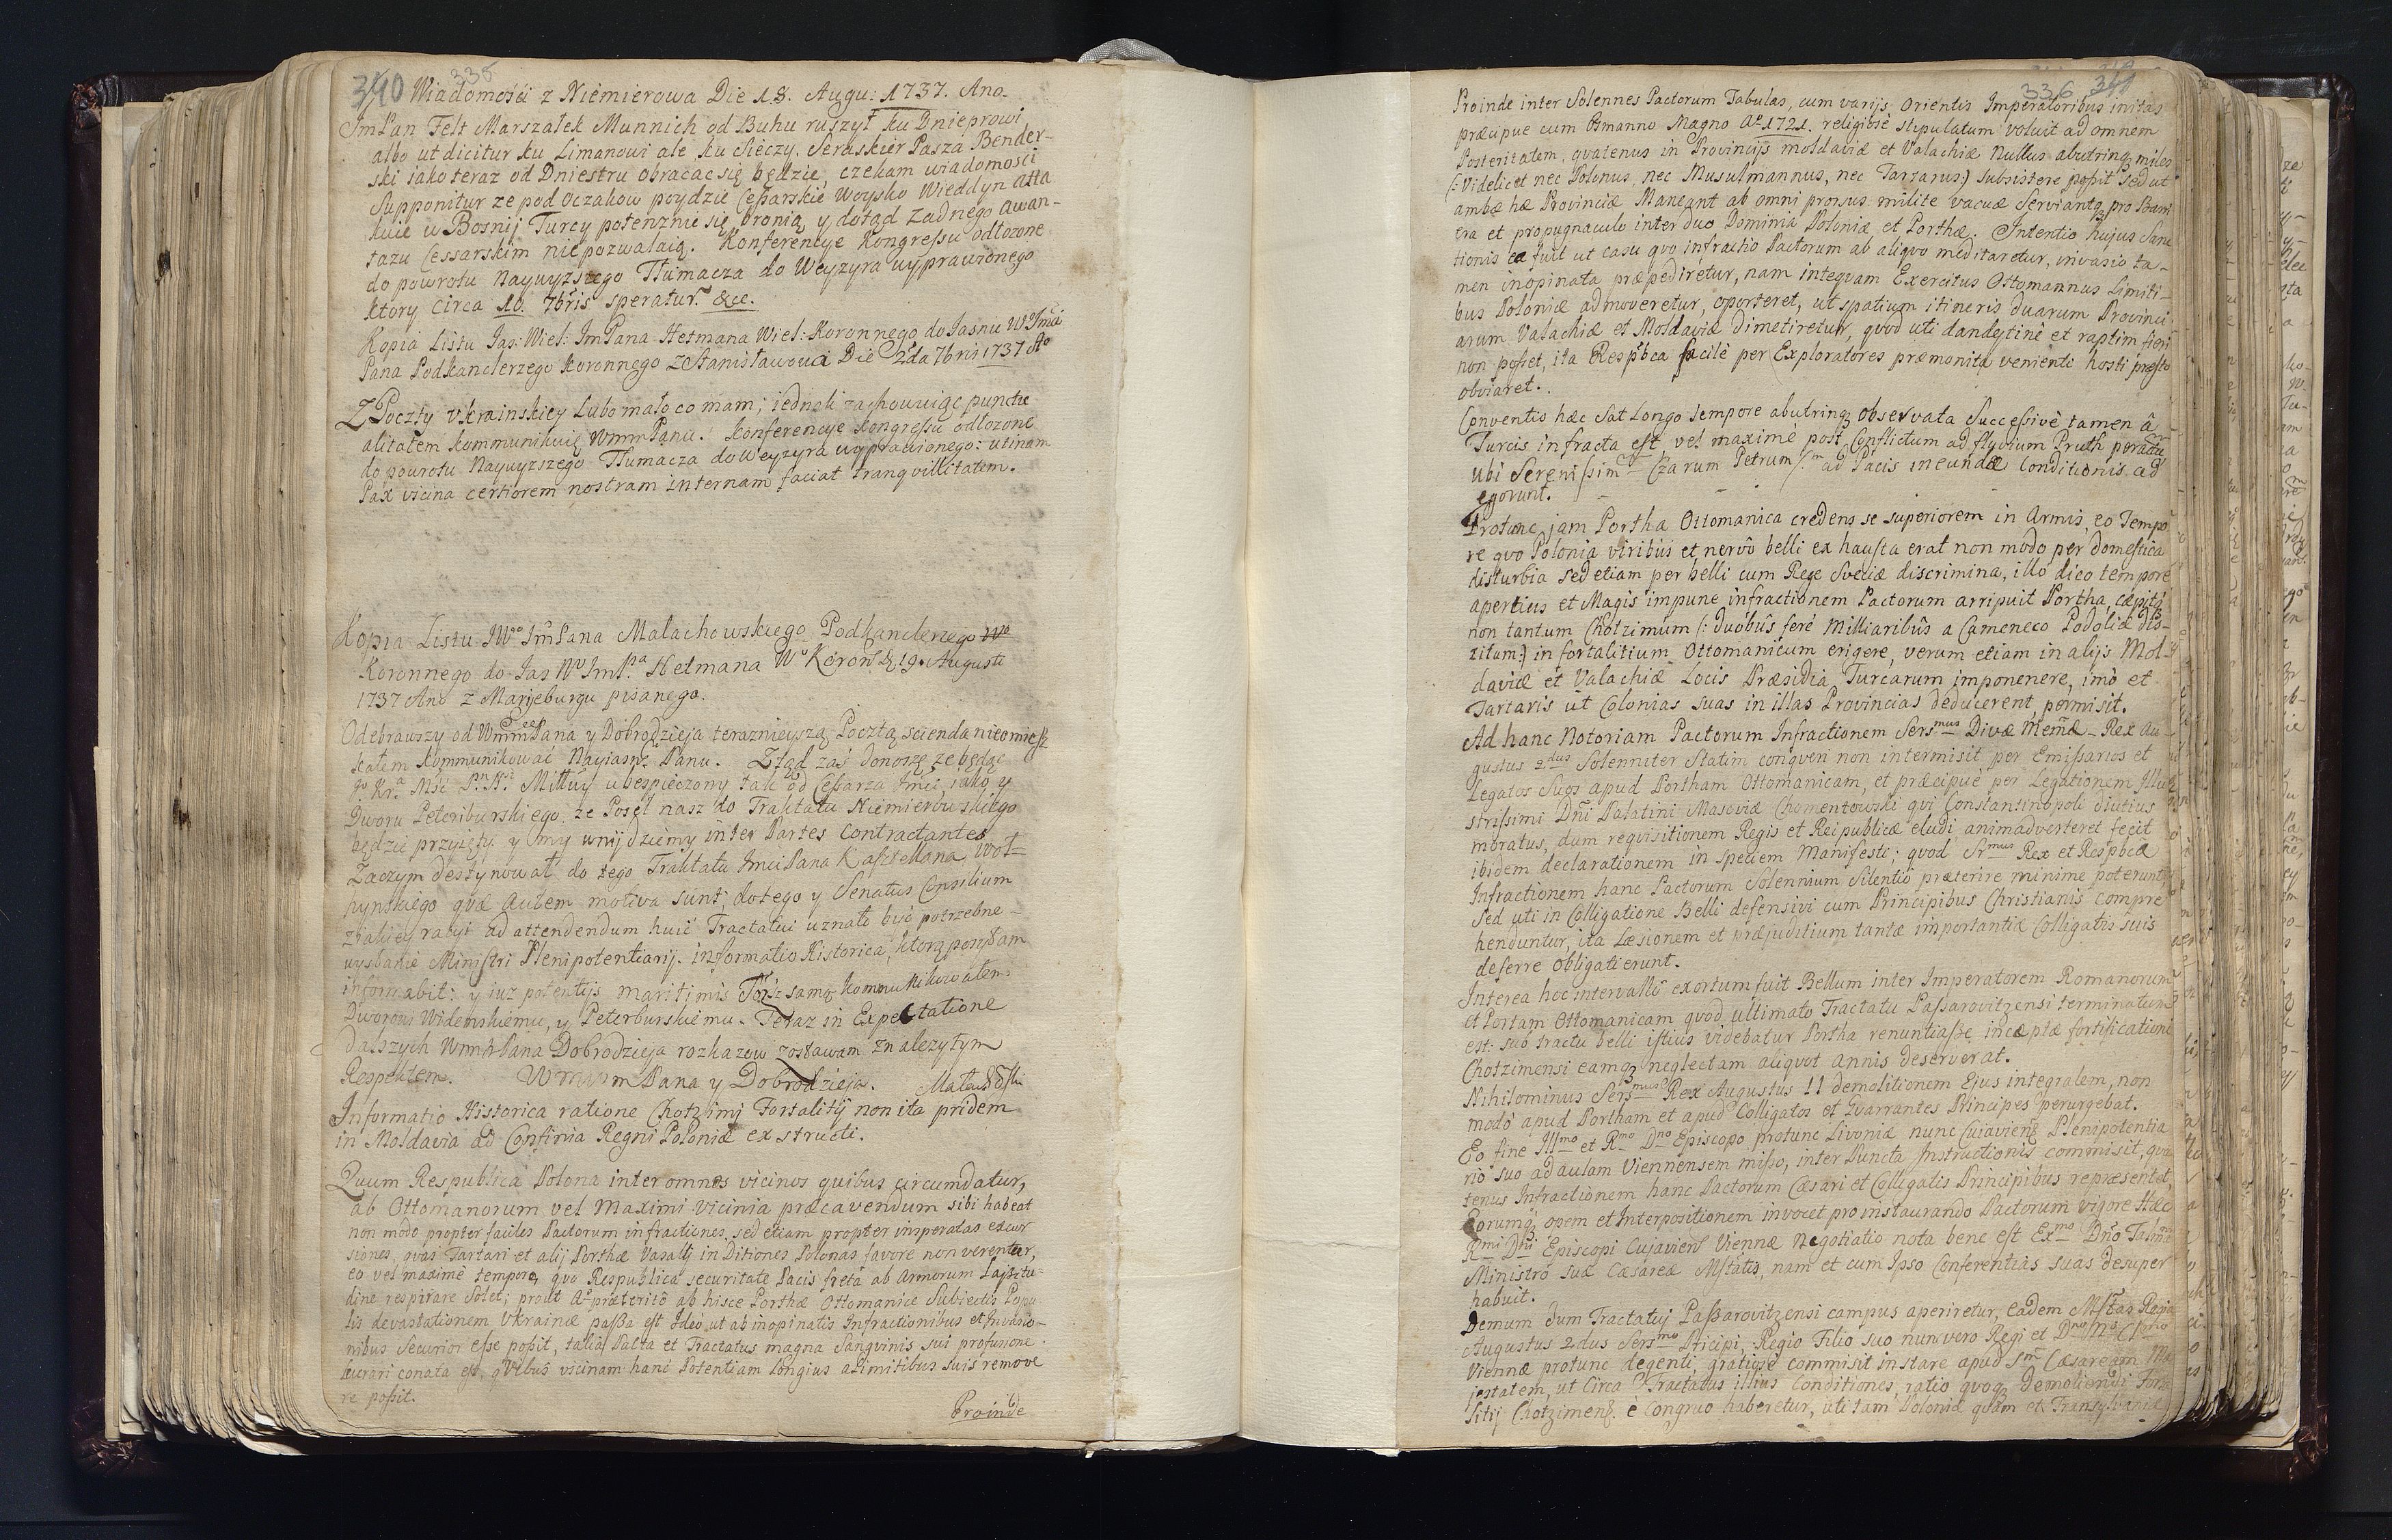 340 335
Wiadomości z Niemierowa Die 18. Augu: 1737. Ano.
ImPan Felt Marszałek Munnich od Buhu ruszył ku Dnieprowi
albo ut dicitur ku Limanowi ale ku Sieczy. Seraskier Pasza Bender-
ski iako teraz od Dniestru obracac się będzie, czekam wiadomosci
Supponitur ze pod Oczakow poydzie Cessarskie Woysko Wieddyn atta
kuie w Bosnij Turcy potenznie się bronią, y dotąd Zadnego awan-
tazu Cessarskim niepozwalaią. Konferencye Kongressu odłozone
do powrotu Naywyzszego Tłumacza do Weyzyra wyprawionego
ktory Circa 10. 7bris speratur. &ce.
Kopia Listu Jas: Wiel: ImPana Hetmana Wiel: Koronnego do Jasnie W Jmci
Pana Podkanclerzego Koronnego z Stanisławowa Die 2da 7bris 1737 Ao
Z Poczty Ukrainskiey Lubo mało co mam; iednak zachowuiąc punctu
alitatem kommunikuię WmmPanu. Konferencye Kongressu odłozone
do powrotu Naywyzszego Tłumacza do Weyzyra wyprawionego: utinam
Pax vicina certiorem nostram internam faciat tranqvillitatem.
Kopia Listu JWgo ImPana Małachowskiego Podkanclerzego
Koronnego do Jas Wo ImPa Hetmana Wo Koron d 19. Augusti
1737 Ano z Marjeburgu pisanego.
Odebrawszy od WmmPana y Dobrodzieja teraznieyszą Pocztą scienda nieomiesz
kałem Kommunikować Nayiasn: Panu. Ztąd zaś donoszę ze będąc
Jo Kr. Mść Pn N: Miłłwy ubespieczony tak od Cessarza Jmci, iako y
Dworu Peteriburskiego, ze Poseł nasz do Traktatu Niemierowskiego
będzie przyięty y my wnijdziemy inter Partes Contractantes
Zaczym destynował do tego Traktatu Jmci Pana Kasztellana Woł-
hynskiego qvæ autem motiva sunt, dotego y Senatus Consilium
z iakiey racyi ad attendendum huic Tractatui uznało być potrzebne
wysłanie Ministri Plenipotentiarij. informatio Historica, ktorą posyłam
informabit: y iuz potentijs maritimis Tosz samę kommunikowałem
Dworowi Wiedenskiemu, y Peterburskiemu. Teraz in Expectatione
dalszych WmmPana Dobrodzieja rozkazow zostawam z nalezytym
Respektem. WmmPana y Dobrodzieja.
Informatio Historica ratione Chotzimi Fortalitij non ita pridem
in Moldavia ad Confinia Regni Poloniæ exstructi.
Quum Respublica Polona inter omnes vicinos quibus circumdatur,
ab Ottomanorum vel Maximi vicinia præcavendum sibi habeat
non modo propter faciles Pactorum infractiones, sed etiam propter insperatas excur
siones, qvas Tartari et alij Porthæ Vasalli in Ditiones Polonas favore non verentur,
eo vel maximè tempore, qvo Respublica securitate Pacis freta ab Armorum Lassitu-
dine respirare solet; prout Ao præteritô ab hisce Porthæ Ottomanicæ Subiectis Popu
lis devastationem Ukrainæ passa est Ideo ut ab inopinatis Infractionibus et Invasio-
nibus Securior esse possit, talia Pacta et Tractatus magna Sangvinis sui profusione
lucrari conata est, qvibus vicinam hanc Potentiam Longius a Limitibus suis remove
re possit.
Proinde
336 341
Proinde inter Solennes Pactorum Tabulas, cum varijs Orientis Imperatoribus initas
præcipue cum Osmanno Magno Ao 1721. religiosè stipulatum voluit ad omnem
Posteritatem, qvatenus in Provincijs Moldaviæ et Valachiæ Nullus abutrinq miles
(: Videlicet nec Polonus, nec Musulmannus, nec Tartarus:) subsistere possit sed ut
ambæ hæ Provinciæ Maneant ab omni prorsus milite vacuæ serviantq pro Barri
era et propugnaculo inter duo Dominia Poloniæ et Porthæ. Intentio hujus Sanc
tionis ea fuit ut casu qvo infractio Pactorum ab aliqvo meditaretur, invasio ta-
men inopinata præpediretur, nam inteqvam Exercitus Ottomannus Limiti-
bus Poloniæ admoveretur, oporteret, ut spatium itineris duarum Provinci
arum Valachiæ et Moldaviæ dimetiretur, qvod uti clandestinè et raptim fieri
non posset, ita Respbca facilè per Exploratores præmonita venienti hosti præsto
obviaret.
Conventio hæc Sat Longo tempore abutrinq observata Successivè tamen â
Turcis infracta est, vel maximè post Conflictum ad fluvium Pruth peractu
ubi Serenissim Czarum Petrum I.m ad Pacis ineundæ Conditionis ad
egerunt.
Protunc jam Portha Ottomanica credens se superiorem in Armis, eo Tempo
re qvo Polonia viribus et nervô belli exhausta erat non modo per domestica
disturbia sed etiam per belli cum Rege Sveciæ discrimina, illo dico tempore
apertius et Magis impune infractionem Pactorum arripuit Portha, cæpitq
non tantum Chotzimum (: duobus ferè Milliaribus a Cameneco Podoliæ dis-
sitam:) in fortalitium Ottomanicum erigere, verum etiam in alijs Mol-
daviæ et Valachiæ Locis Præsidia Turcarum imponenere, imò et
Tartaris ut Colonias suas in illas Provincias deducerent, permisit.
Ad hanc Notoriam Pactorum Infractionem Sersmus Divæ Memæ Rex Au
gustus 2dus Solenniter Statim conqveri non intermisit per Emissarios et
Legatos Suos apud Portham Ottomanicam, et præcipuè per Legationem Illu
strissimi Dni Palatini Masoviæ Chomentowski qvi Constantinopoli diutius
moratus, dum reqvisitionem Regis et Reipublicæ eludi animadverteret fecit
ibidem declarationem in speciem Manifesti; qvod Srmus Rex et Respbca
Infractionem hanc Pactorum Solennium Silentiô præterire minime poterunt
sed uti in Colligatione Belli defensivi cum Principibus Christianis compre
henduntur, ita Læsionem et præjuditium tantæ importantiæ Colligatis suis
deferre obligati erunt.
Interea hoc intervallô exortum fuit Bellum inter Imperatorem Romanorum
et Portam Ottomanicam qvod ultimato Tractatu Passarovitzensi terminatum
est: sub tractu belli istius videbatur Portha renuntiasse incæptæ fortificationi
Chotzimensi eamq neglectam aliqvot annis deserverat.
Nihilominus Sersmus Rex Augustus II demolitionem Ejus integralem, non
modò apud Portham et apud Colligatos et Gvarrantes Principes perurgebat.
Eo fine Illmo et Rmo Dno Episcopo protunc Livoniæ nunc Cujavien Plenipotentia
rio suo ad aulam Viennensem misso, inter Puncta Instructionis commisit, qva
tenus Infractionem hanc Pactorum Cæsari et Colligatis Principibus repræsentet,
Eorumq opem et Interpositionem invocet pro instaurando Pactorum vigore Hæc
Rmi Dni Episcopi Cujavien Viennæ Negotiatio nota bene est Exmo Dno
Ministro Suæ Cæsareæ Mstatis, nam et cum Ipso Conferentias suas desuper
habuit.
Demum dum Tractatuj Passarovitzensi campus aperiretur, Eadem Mstas Regia
Augustus 2dus Sersmo Pricipi, Regio Filio suo nunvero Regi et Dno
Viennæ protunc degenti, gratiosè commisit instare apud Sm Cæsaream Ma
jestatem, ut Circa Tractatus illius Conditiones, ratio qvoq Demoliendi Forta
litij Chotzimens. è Congruo haberetur, uti tam Poloniæ qvam et Transylvaniæ